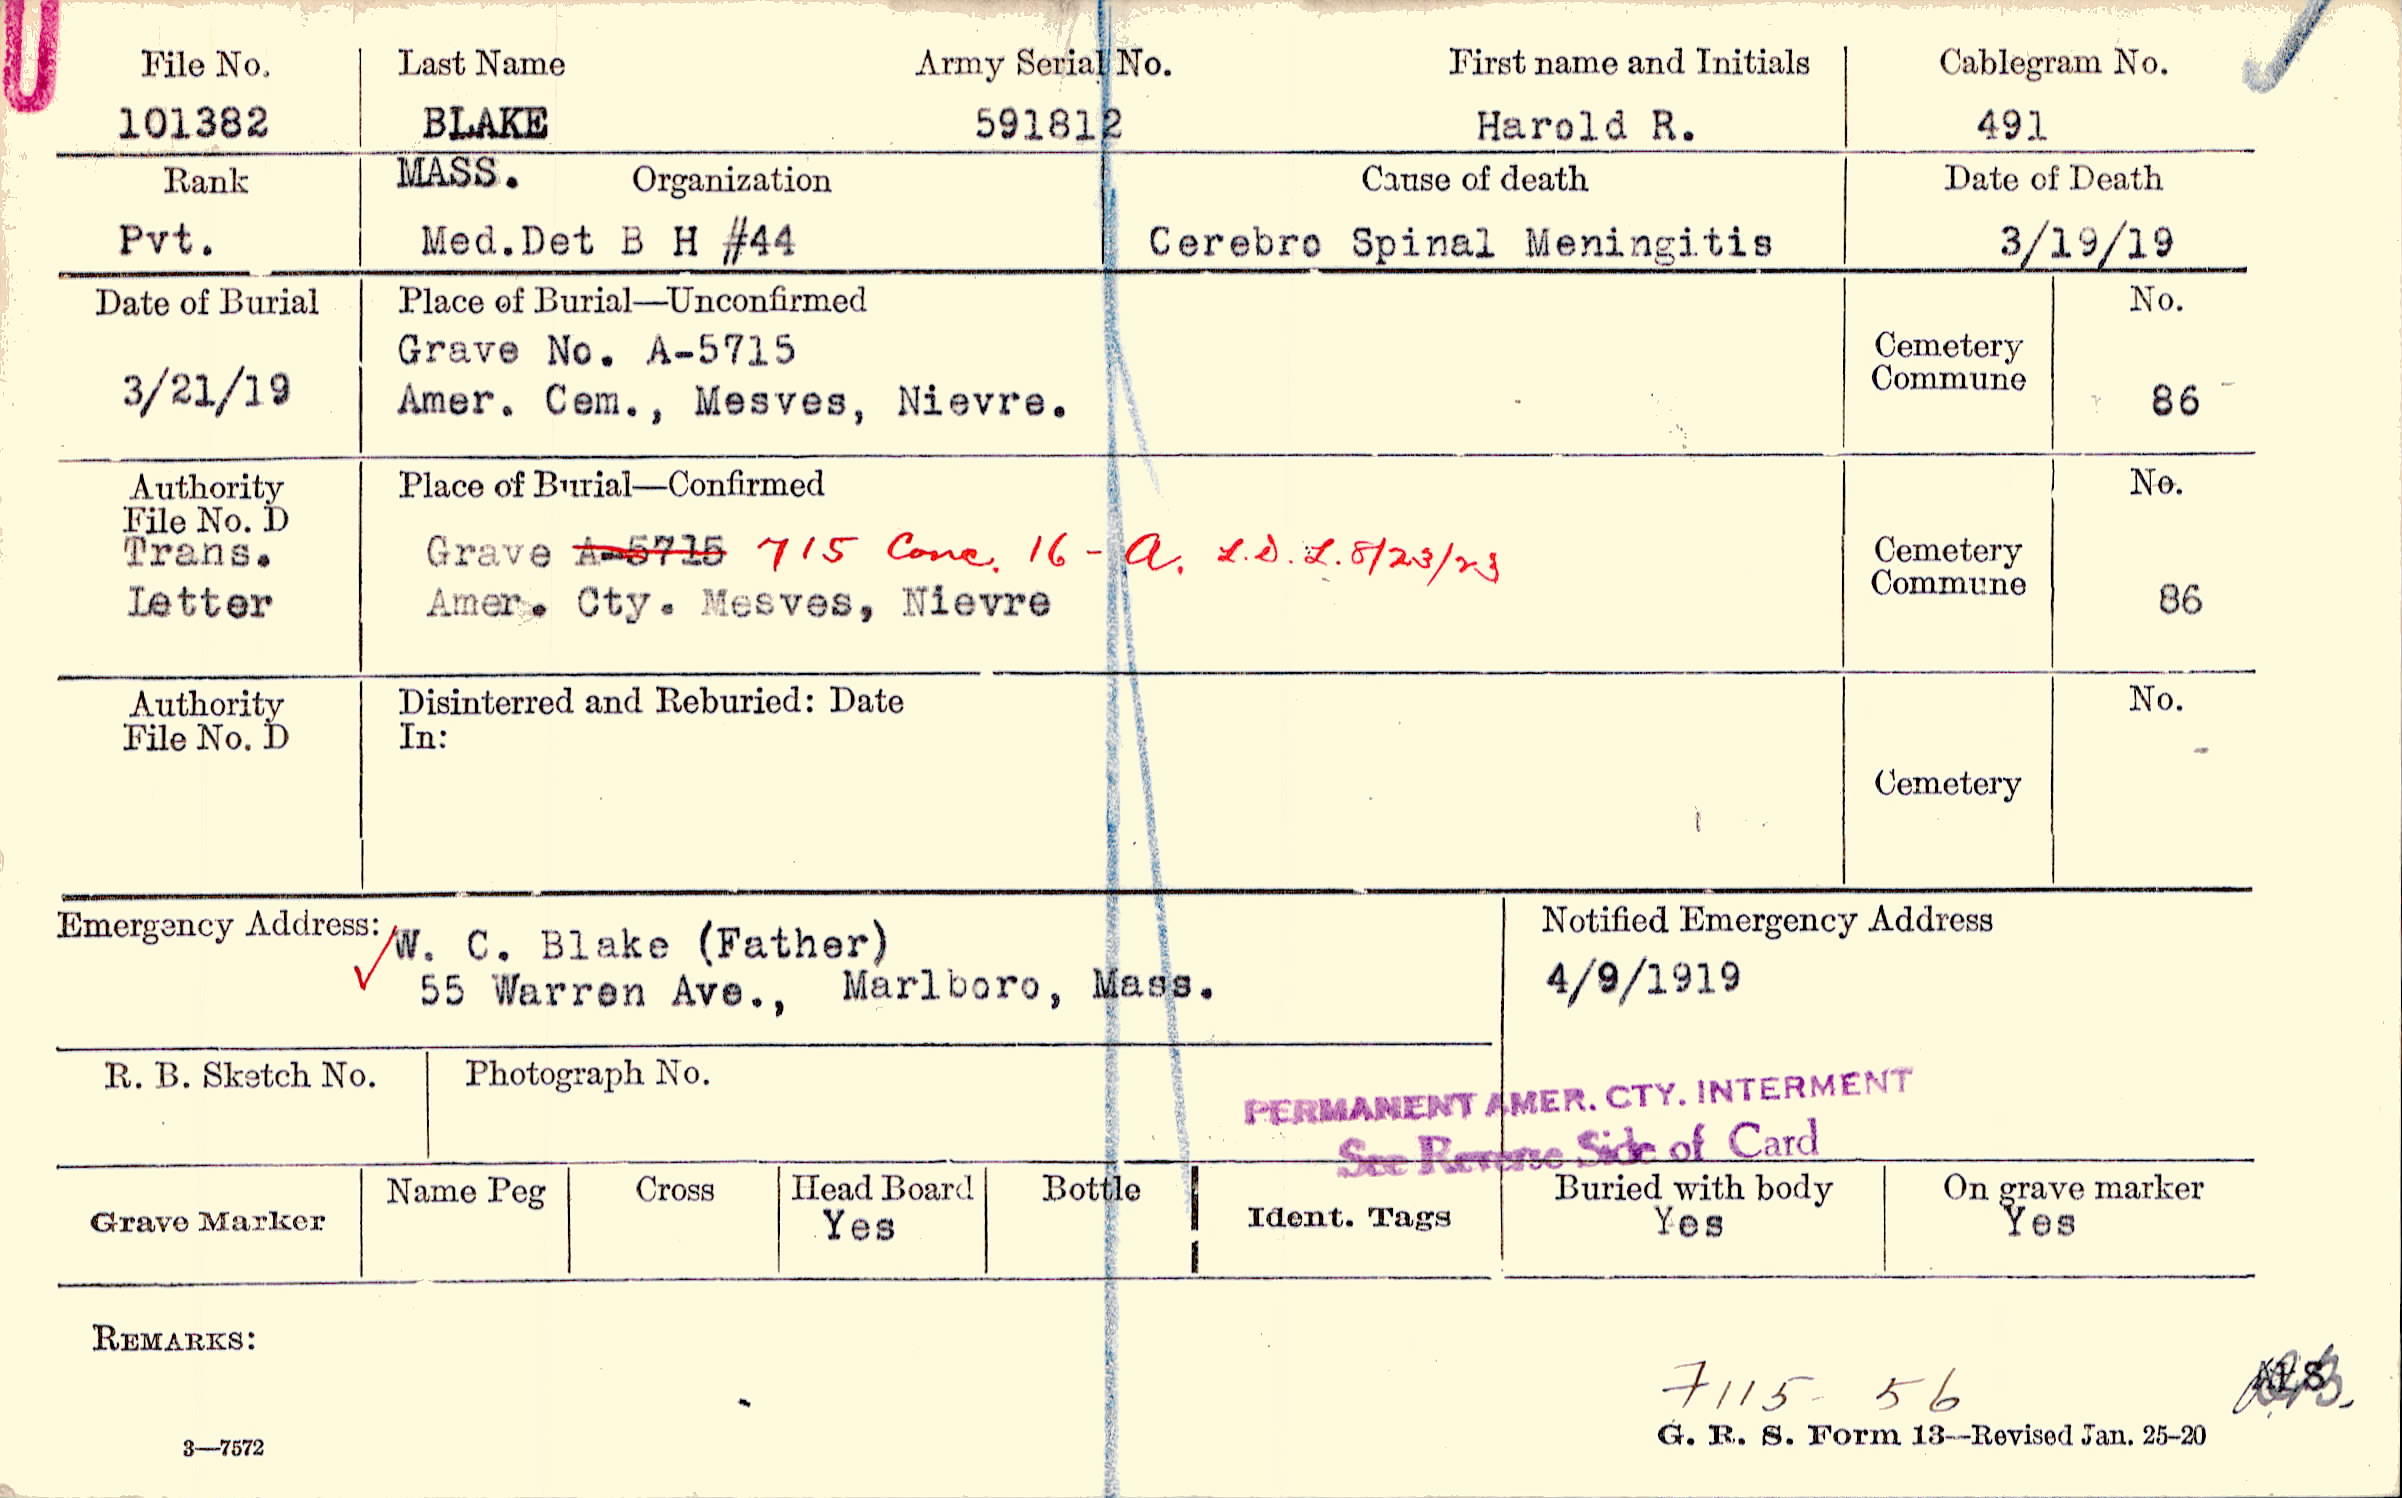 File No. Last Name Army Serial No. First name and Initials Cablegram No.
101382 BLAKE 591812 Harold R. 491
Rank MASS. Organization Cause of death Date of Death
Pvt. Med.Det B H #44 Cerebro Spinal Meningitis 3/19/19
Date of Burial Place of Burial—Unconfirmed No.
Grave No. A-5715 Cemetery
3/21/19 Amer. Cem., Mesves, Nievre. Commune 86
Authority Place of Burial—Confirmed No.
File No. D
Trans. Grave A-5715 715 Conc. 16 - A. L.D.L. 8/23/23 Cemetery
Letter Amer. Cty. Mesves, Nievre Commune 86
Authority Disinterred and Reburied: Date No.
File No. D In:
Cemetery
Emergency Address: W. C. Blake (Father) Notified Emergency Address
55 Warren Ave., Marlboro, Mass. 4/9/1919
R. B. Sketch No. Photograph No.
PERMANENT AMER. CTY. INTERMENT
See Reverse Side of Card
Grave Marker Name Peg Cross Head Board Bottle Ident. Tags Buried with body On grave marker
Yes Yes Yes
REMARKS:
7115- 56
3—7572 G. R. S. Form 13—Revised Jan. 25-20